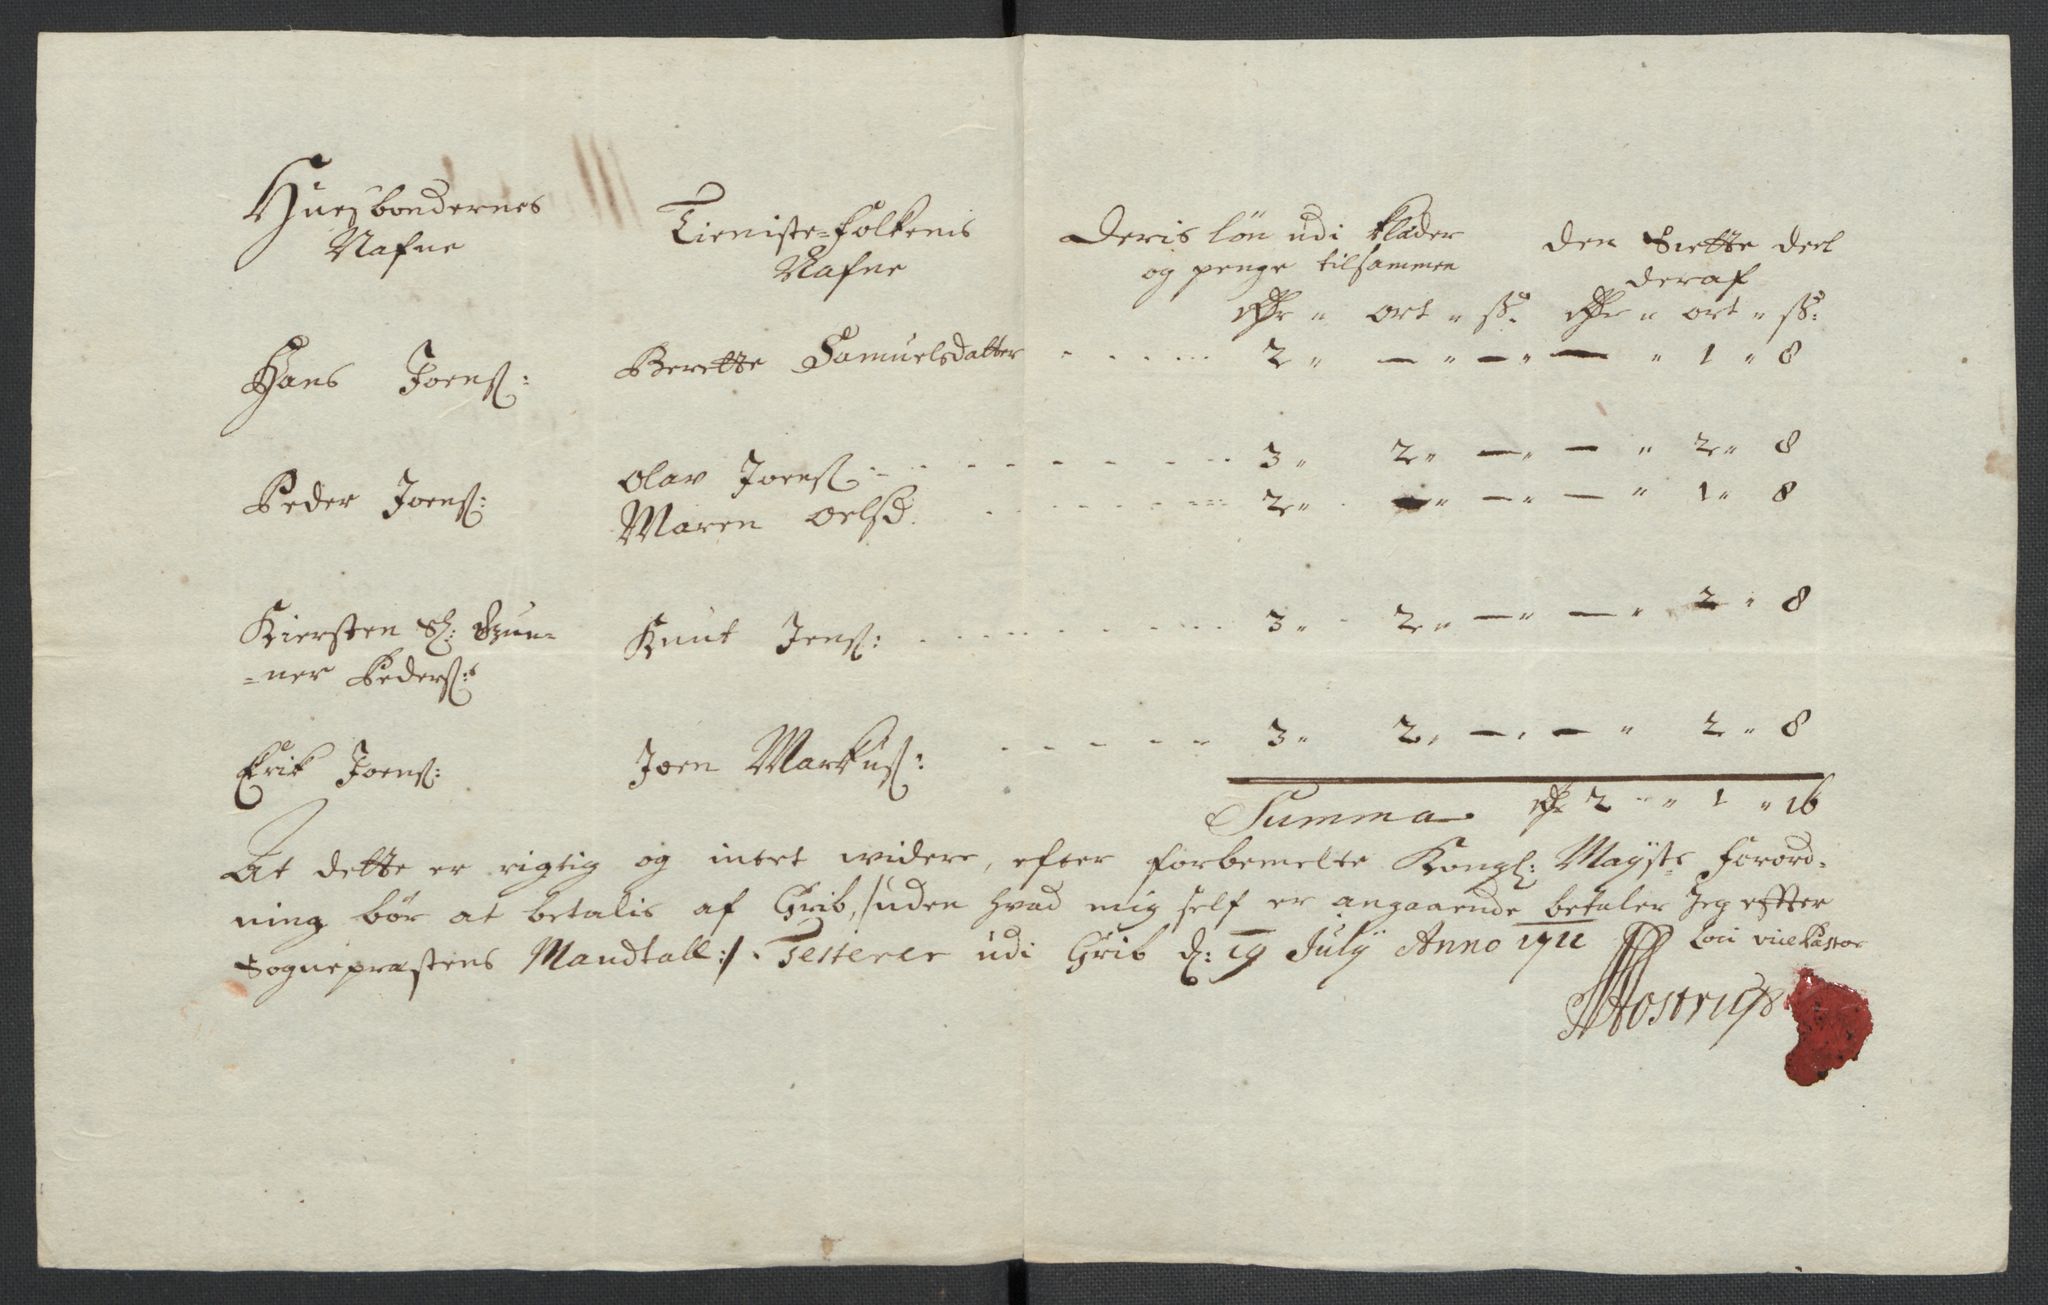 Huusbondernes Nafne
Tieniste=folkenis Nafne
Deris løn udi klæder og penge tilsammen
den Siette deel deraf
Rdr " ort " ss. Rdr " ort " ss:
Hans Joens: Berette Samuelsdatter 2 " — " — " — " 1 " 8
Peder Joens: Olav Joens: 3 " 2 " — " — " 2 " 8
Maren Oelsd. 2 " — " — " — " 1 " 8
Kiersten Sl: Gun=
=ner Peders:s Knut Jens: 3 " 2 " — " — " 2 " 8
Erik Joens: Joen Markus: 3 " 2 " — " — " 2 " 8
Summa Rdr 2 " 1 " 16
At dette er rigtig og intet widere, efter forbemelte Kongl: Mayts forord=
ning bør at betalis af Grib, /:uden hvad mig self er angaaende betaler Jeg effter
Sognepræstens Mandtall:/. Testerer udi Grib d: 19 July Anno 1711 loci vice Pastor
Hostrup